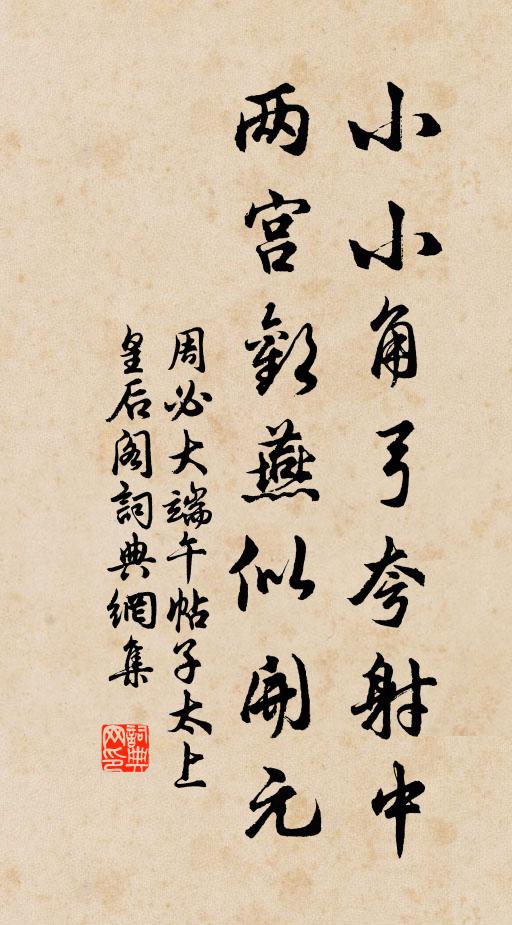 小小角弓夸射中
两宫歡燕似开元
周必大端午帖子太上
皇后阁詞典網集
詞典网印